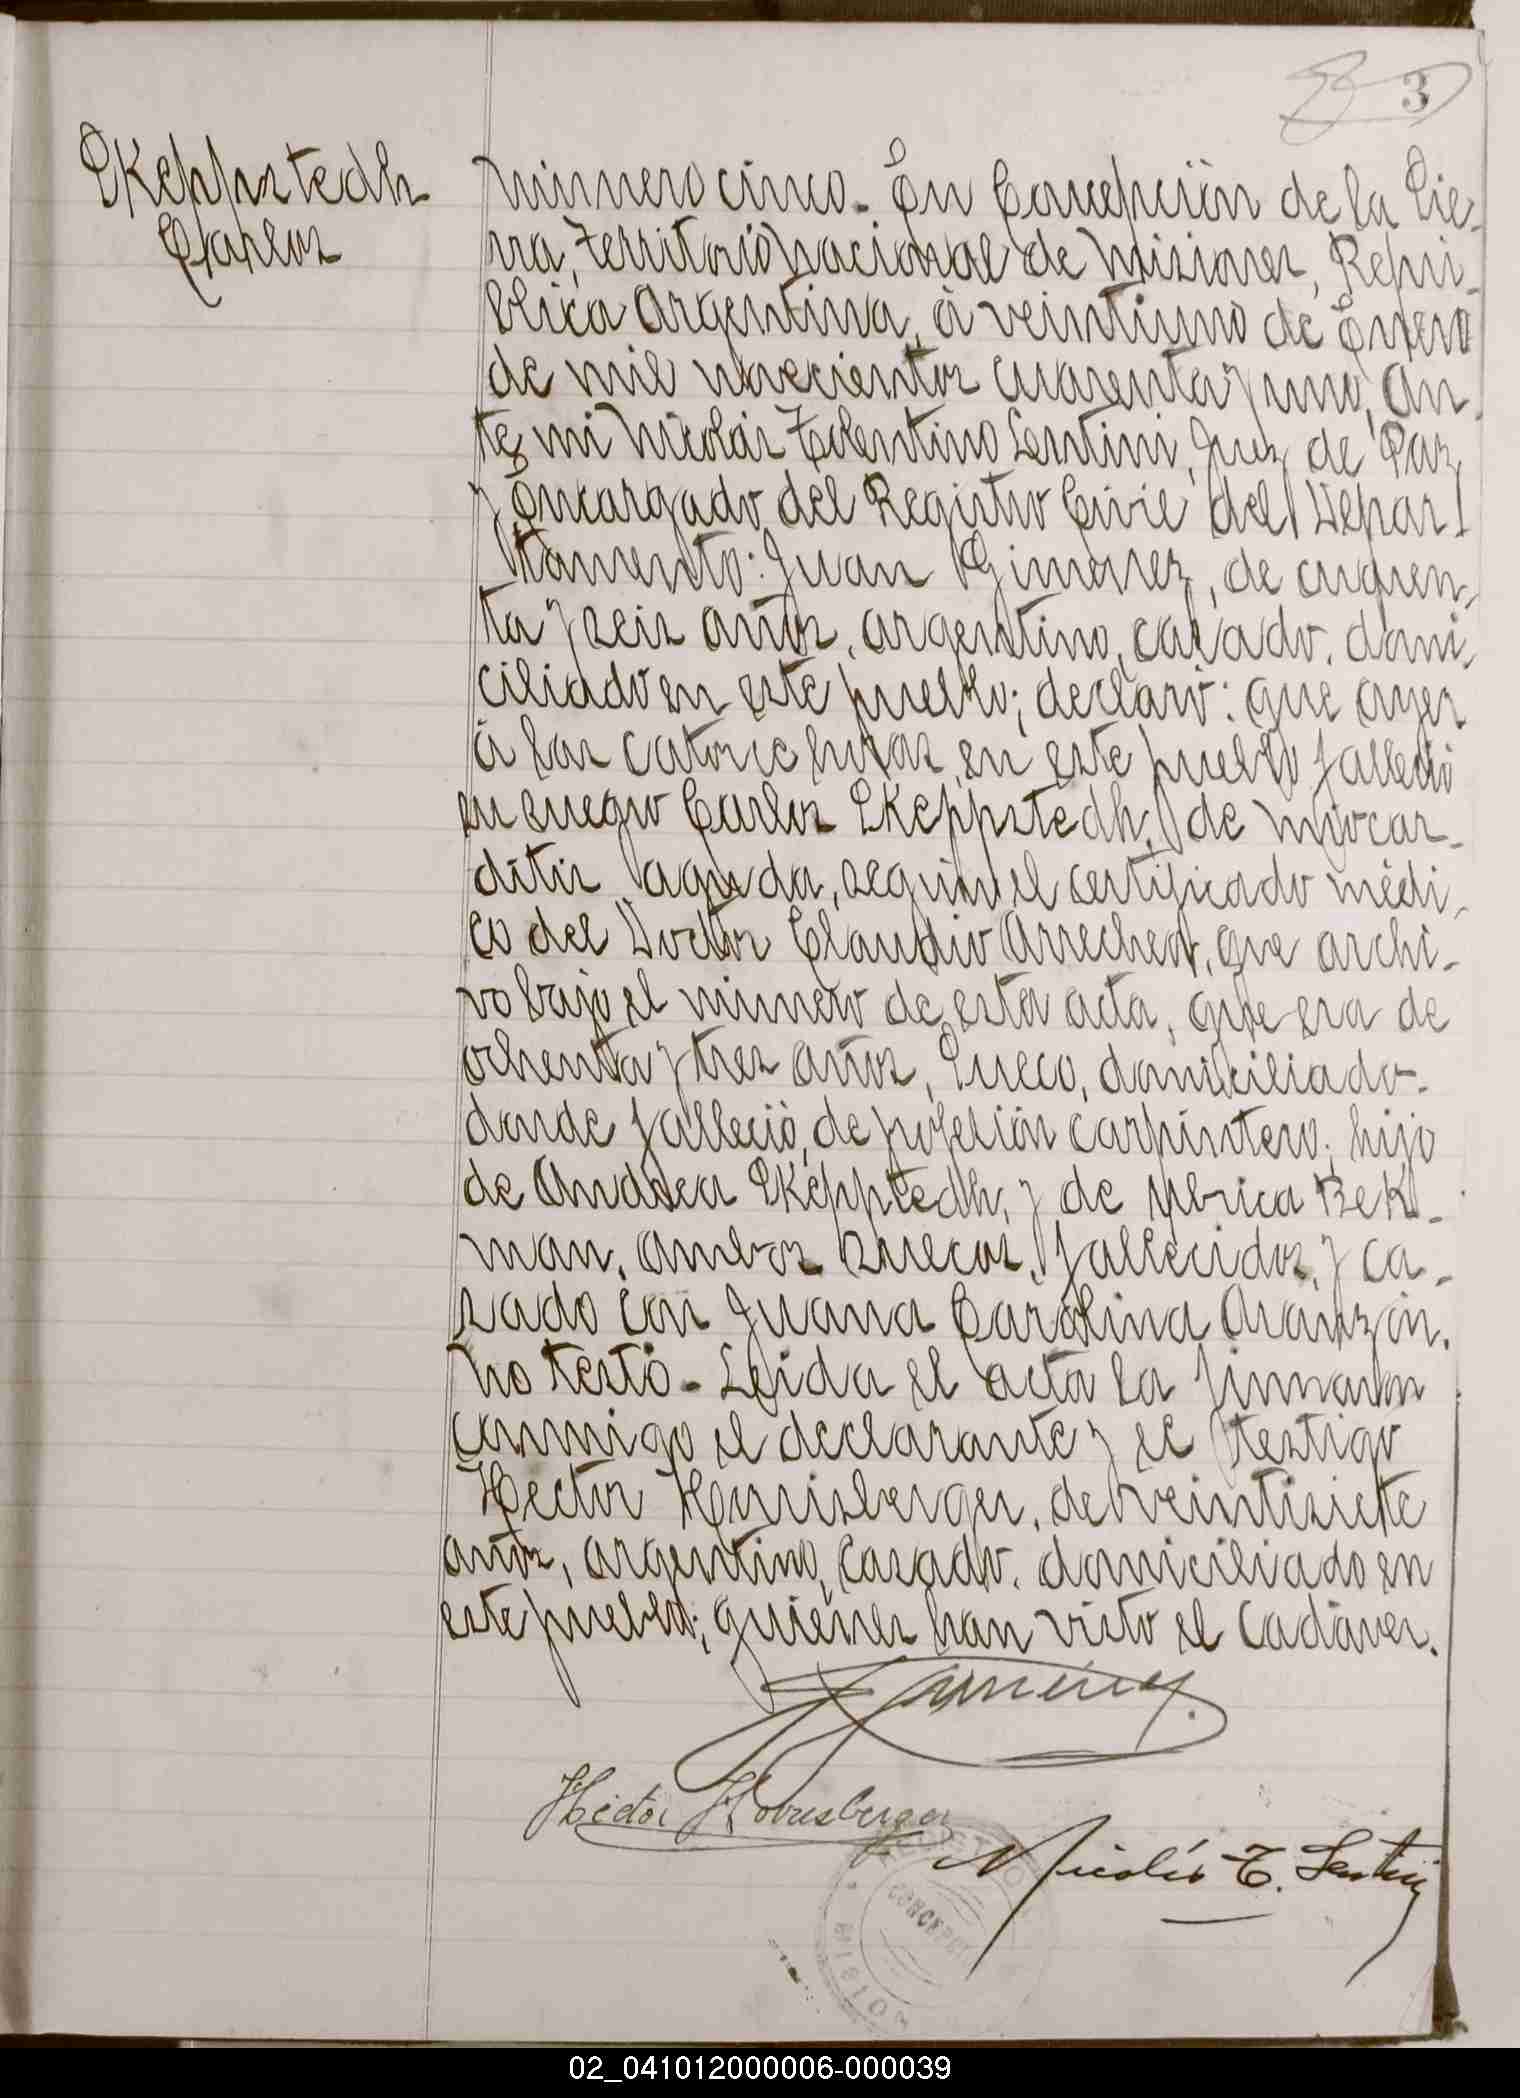 3
Skeppstedh
Carlos
Número cinco. En Concepción de la Sie-
rra, Territorio Nacional de Misiones, Repú-
blica Argentina, á veintiuno de Enero
de mil novecientos cuarenta y uno, An-
te mi Nicolás Tolentino Lentini, Juez de Paz
y Encargado del Registro Civil del Depar-
tamento: Juan Gimenez, de cuaren-
ta y seis años, argentino, casado, domi-
ciliado en este pueblo; declaró: que ayer
á las catorce horas, en este pueblo falleció
su suegro Carlos Skeppstedh, de miocar-
ditis aguda, según el certificado médi-
co del Doctor Claudio Arrechea, que archi-
vo bajo el número de esta acta, que era de
ochenta y tres años, Sueco, domiciliado
donde falleció, de profesión carpintero, hijo
de Andrea Skepptedh, y de Ybrica Bek-
man, ambos suecos, fallecidos, y ca-
sado con Juana Carolina Aranzón.
No testó - Leída el acta la firmaron
conmigo el declarante y el testigo
Hector Hounsberger, de veintisiete
años, argentino, casado, domiciliado en
este pueblo; quiénes han visto el cadáver.
Hector
Nicolás T. Lentini
CONCEPCI
02_041012000006-000039